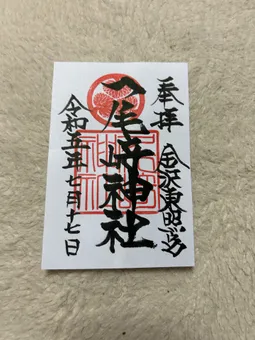 奉拝 金沢東照宮
尾﨑神社
令和五年七月十七日